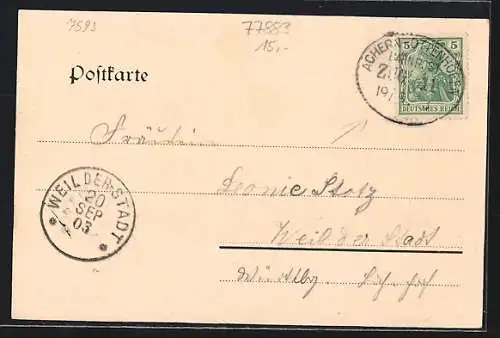 7593
77883
15,-
Postkarte
ACHERN-OTTENHÖFEN
BAHNPOST
5 5
DEUTSCHES REICH
Fräulein
Leonie Stotz
Weil der Stadt
Württbg.
WEIL DER STADT
20
SEP
03